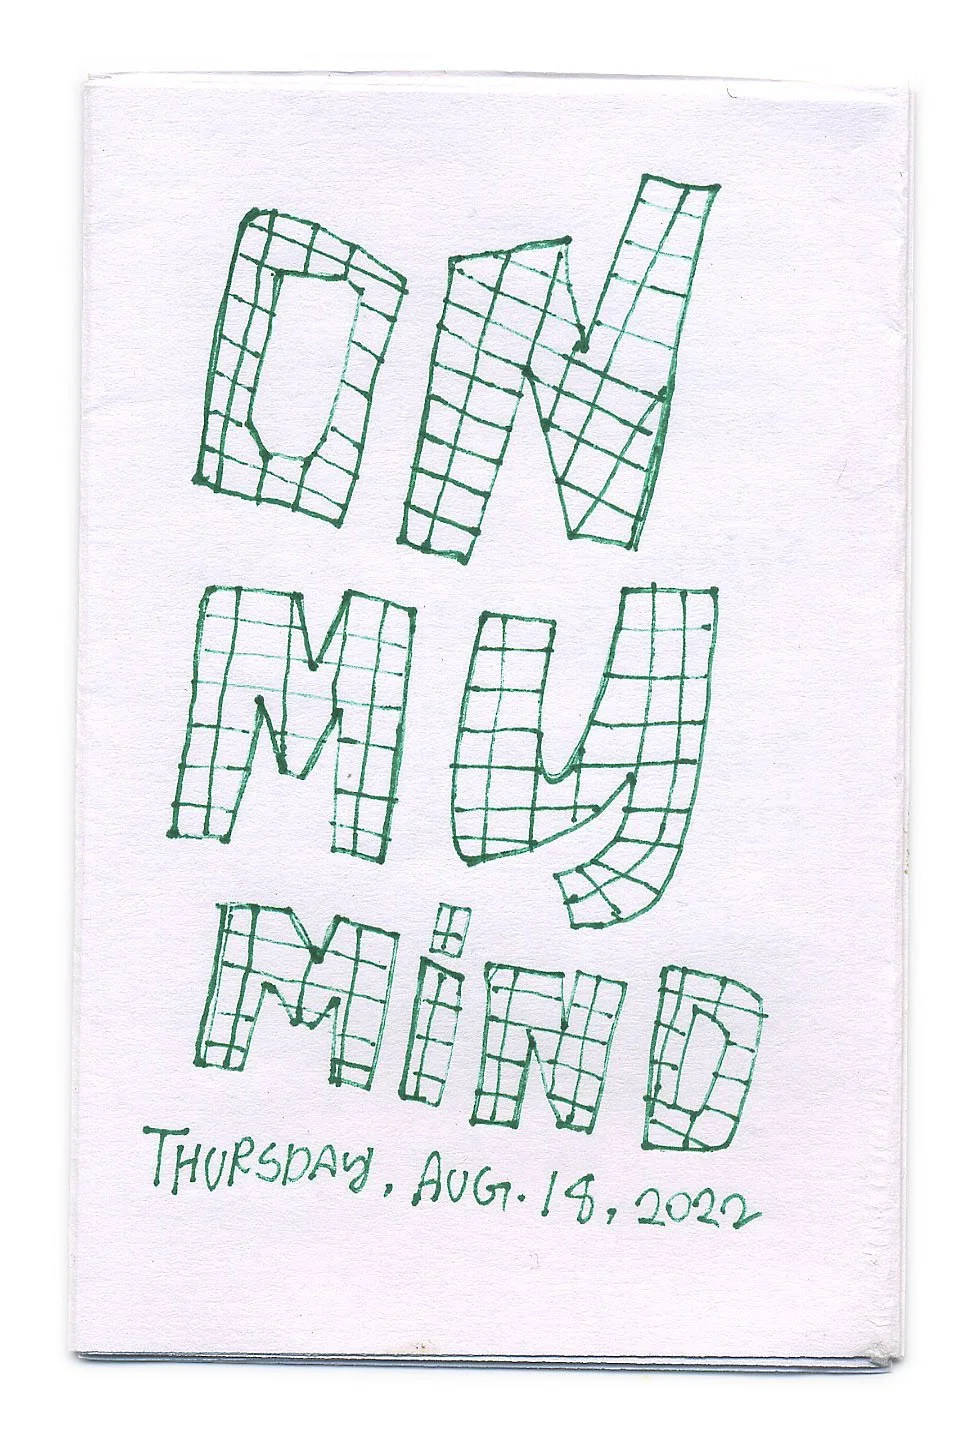 ON
MY
MiND
THURSDAY, AUG. 18, 2022